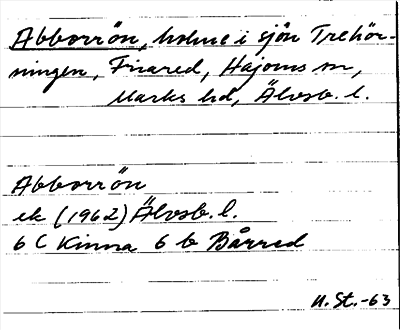 Abborrön, holme i sjön Trehör-
ningen, Fixared, Hajoms sn,
Marks hd, Älvsb. l.
Abborrön
ek (1962) Älvsb. l.
6 C Kinna 6 b Bårred
U. St. -63